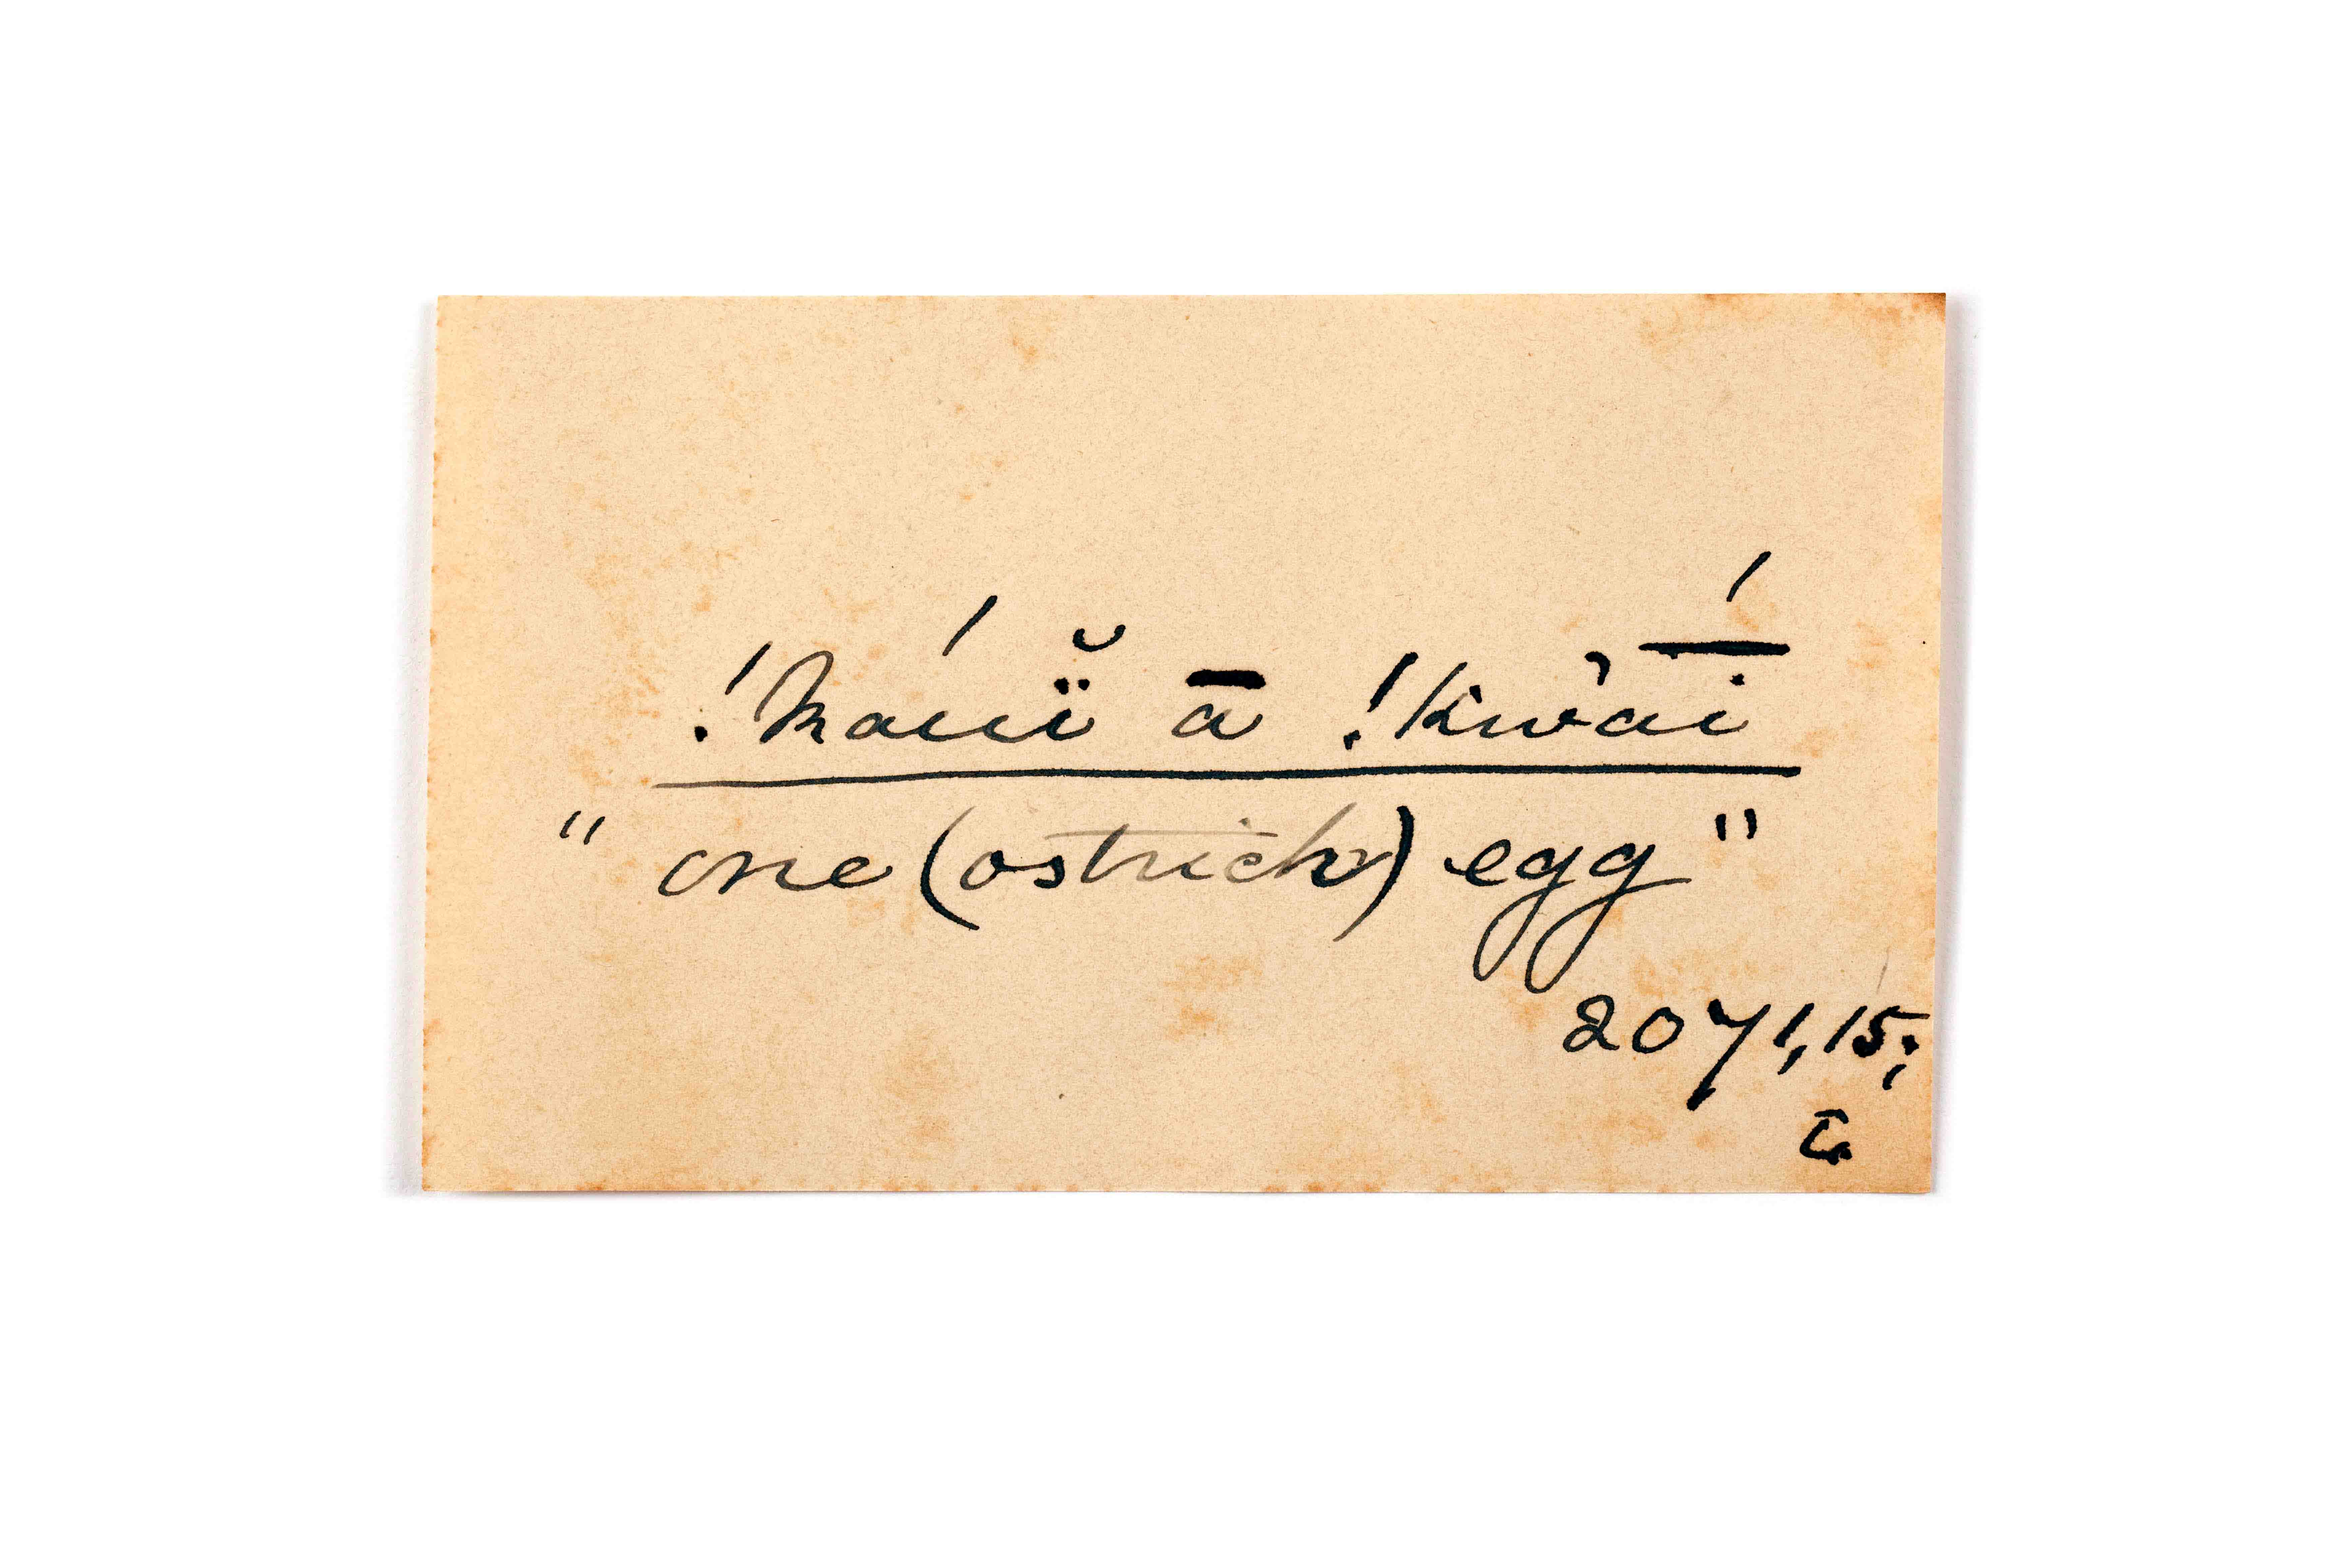 !káuĭ̈ ā !kwā́i
" one (ostrich) egg "
2071, 15;